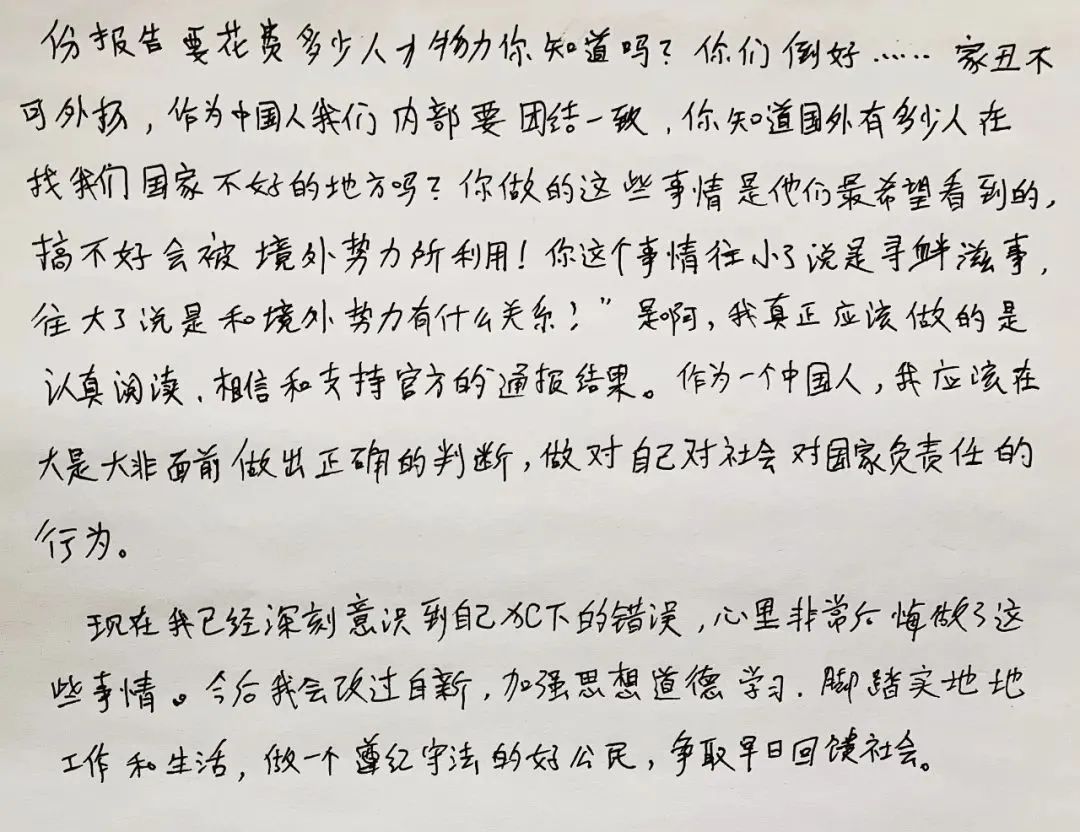 份报告要花费多少人才物力你知道吗？你们倒好…… 家丑不
可外扬，作为中国人我们内部要团结一致，你知道国外有多少人在
找我们国家不好的地方吗？你做的这些事情是他们最希望看到的，
搞不好会被境外势力所利用！你这个事情往小了说是寻衅滋事，
往大了说是和境外势力有什么关系？” 是啊，我真正应该做的是
认真阅读、相信和支持官方的通报结果。作为一个中国人，我应该在
大是大非面前做出正确的判断，做对自己对社会对国家负责任的
行为。
现在我已经深刻意识到自己犯下的错误，心里非常后悔做了这
些事情。今后我会改过自新，加强思想道德学习，脚踏实地地
工作和生活，做一个遵纪守法的好公民，争取早日回馈社会。